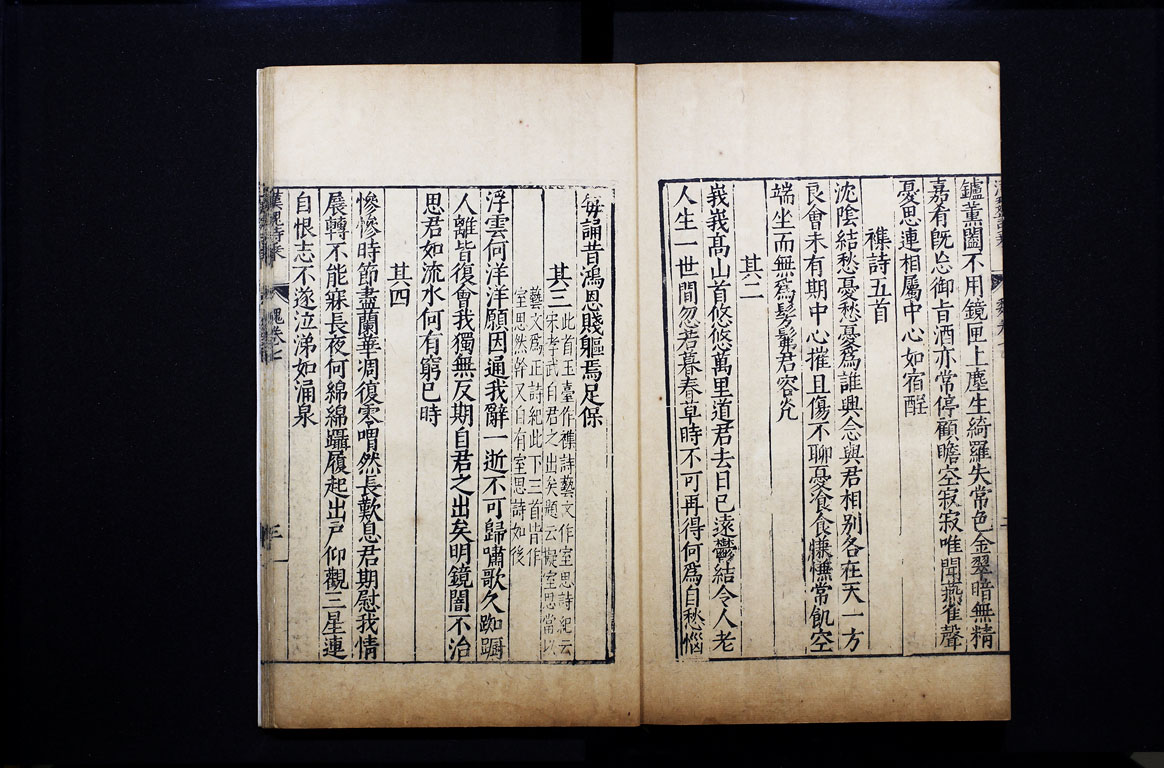 鑪薰闔不用鏡匣上塵生綺羅失常色金翠暗無精
嘉肴既忘御旨酒亦常停顧瞻空寂寂唯聞燕雀聲
憂思連相屬中心如宿酲
襍詩五首
沈陰結愁憂愁憂爲誰興念與君相别各在天一方
良會未有期中心摧且傷不聊憂飡食慊慊常飢空
端坐而無爲髣髴君容光
其二
峩峩高山首悠悠萬里道君去日已遠鬱結令人老
人生一世間忽若暮春草時不可再得何爲自愁惱
每誦昔鴻恩賤軀焉足保
其三
此首玉臺作襍詩藝文作室思詩紀云
宋孝武自君之出矣題云擬室思當以
藝文爲正詩紀此下三首皆作
室思然幹又自有室思詩如後
浮雲何洋洋願因通我辭一逝不可歸嘯歌久踟躕
人離皆復會我獨無反期自君之出矣明鏡闇不治
思君如流水何有窮已時
其四
慘慘時節盡蘭華凋復零喟然長歎息君期慰我情
展轉不能寐長夜何綿綿躡履起出戸仰觀三星連
自恨志不遂泣涕如涌泉
漢魏詩乘
魏卷七
三